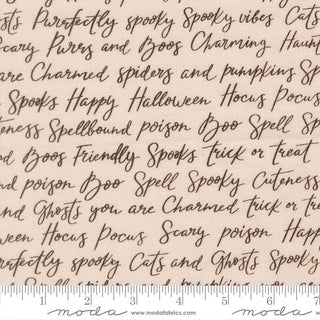 osts Purrfectly spooky Spooky vibes Cats
Scary Purrs and Boos Charming Haunt
are Charmed spiders and pumpkins Sp
Spooks Happy Halloween Hocus Pocus
teness Spellbound poison Boo Spell Sp
d Boos Friendly Spooks trick or treat
nd poison Boo Spell Spooky Cuteness
and Ghosts you are Charmed trick or tre
ween Hocus Pocus Scary poison Happ
rrfectly spooky Cats and Ghosts Spooky
1 2 3 4 5 6 7
moda www.modafabrics.com moda